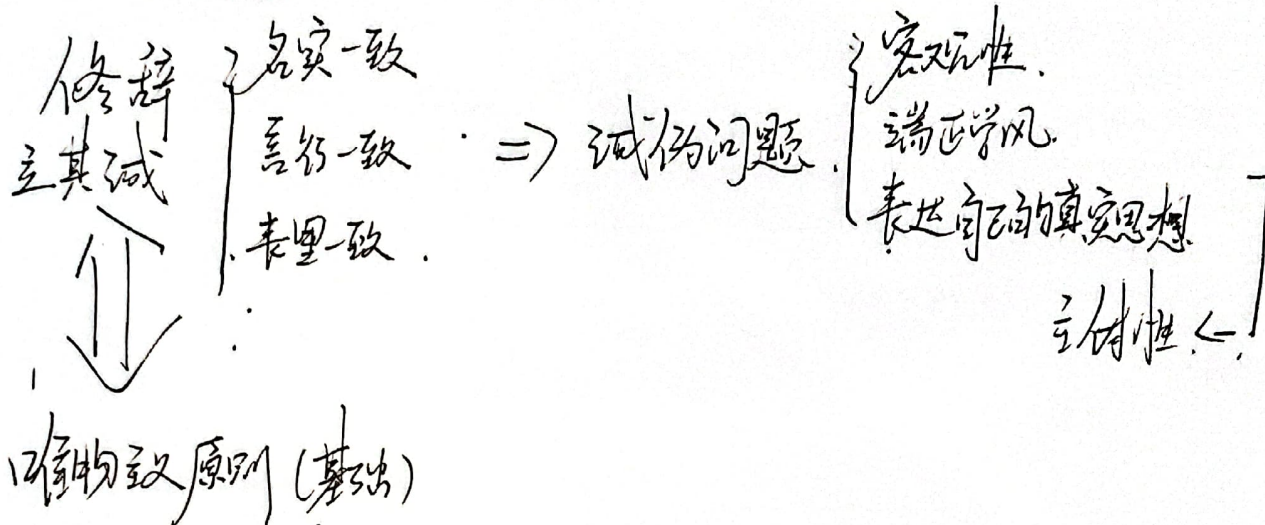 修辞
立其诚
名实一致
言行一致
表里一致.
⇒ 诚伪问题.
客观性.
端正学风.
表达自己的真实思想
主体性 ←
唯物主义原则(基础)